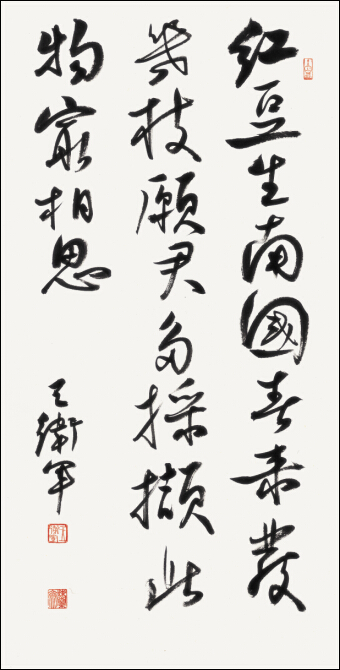 紅豆生南國春来發
幾枝願君多採擷此
物最相思
王衛軍